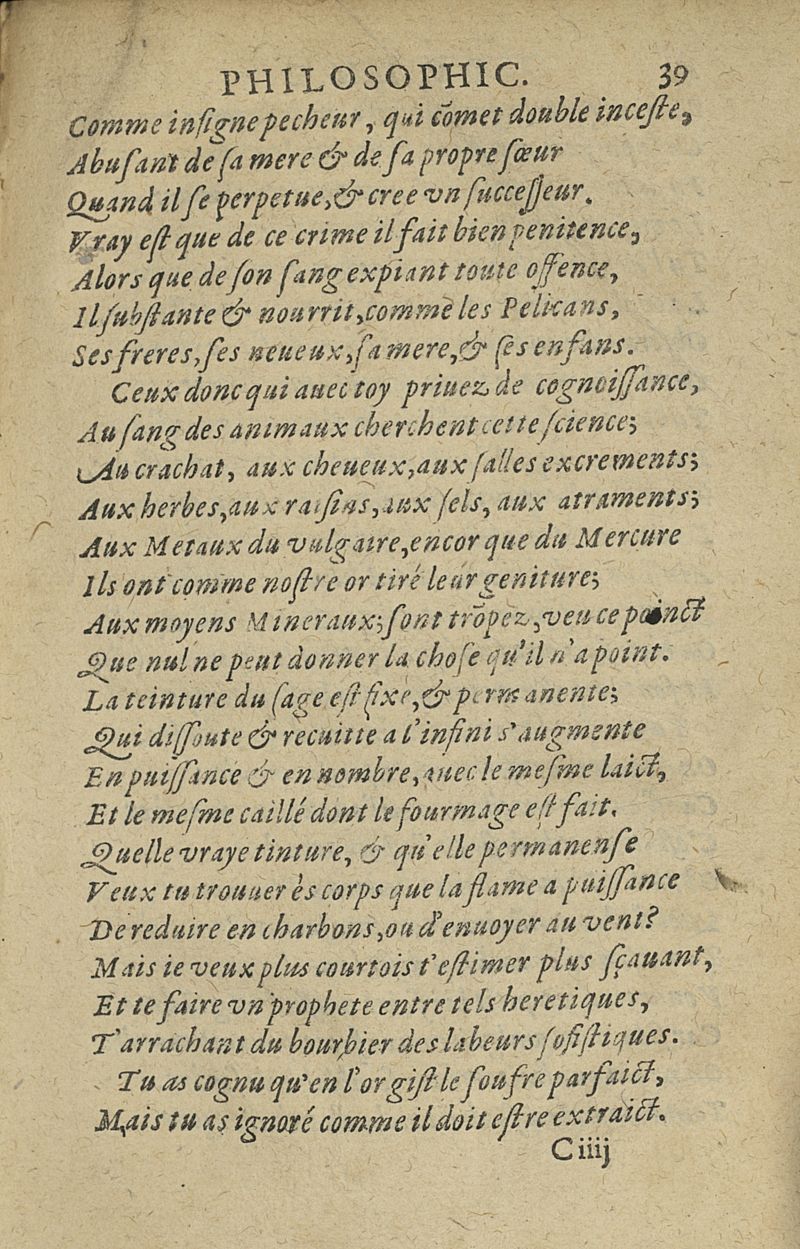 PHILOSOPHIC. 39
Comme inſigne pecheur, qui cõmet double inceſte,
Abuſant de ſa mere & de ſa propre ſœur
Quand il ſe perpetue, & cree vn ſucceſſeur.
Vray eſt que de ce crime il fait bien penitence,
Alors que de ſon ſang expiant toute offence,
Il ſubſtante & nourrit, comme les Pelicans,
Ses freres, ſes neueux, ſa mere, & ſes enfans.
Ceux donc qui auec toy priuez de cognoiſſance,
Au ſang des animaux cherchent cette ſcience;
Au crachat, aux cheueux, aux ſalles excrements;
Aux herbes, aux raiſins, aux ſels, aux atraments;
Aux Metaux du vulgaire, encor que du Mercure
Ils ont comme noſtre or tiré leur geniture;
Aux moyens Mineraux; ſont trõpez, veu ce poinct
Que nul ne peut donner la choſe qu'il n'a point.
La teinture du ſage eſt fixe, & permanente;
Qui diſſoute & recuitte a l'infini s'augmente
En puiſſance & en nombre, auec le meſme laict,
Et le meſme caillé dont le fourmage eſt fait.
Quelle vraye tinture, & qu'elle permanenſe
Veux tu trouuer ès corps que la flame a puiſſance
De reduire en charbons, ou d'enuoyer au vent?
Mais ie veux plus courtois t'eſtimer plus ſçauant,
Et te faire vn prophete entre tels heretiques,
T'arrachant du bourbier des labeurs ſofiſtiques.
Tu as cognu qu'en l'or giſt le ſoufre parfaict,
Mais tu as ignoré comme il doit eſtre extraict.
Ciiij